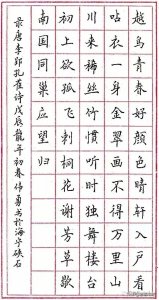 越鸟青春好颜色晴轩入户看
咕衣一身金翠画不得万里山
川来稀丝竹惯听时独舞楼台
初上欲孤飞刺桐花谢芳草歇
南国同巢应望归
录唐李郢孔雀诗戊辰龍年初春伟勇书于海宁硖石